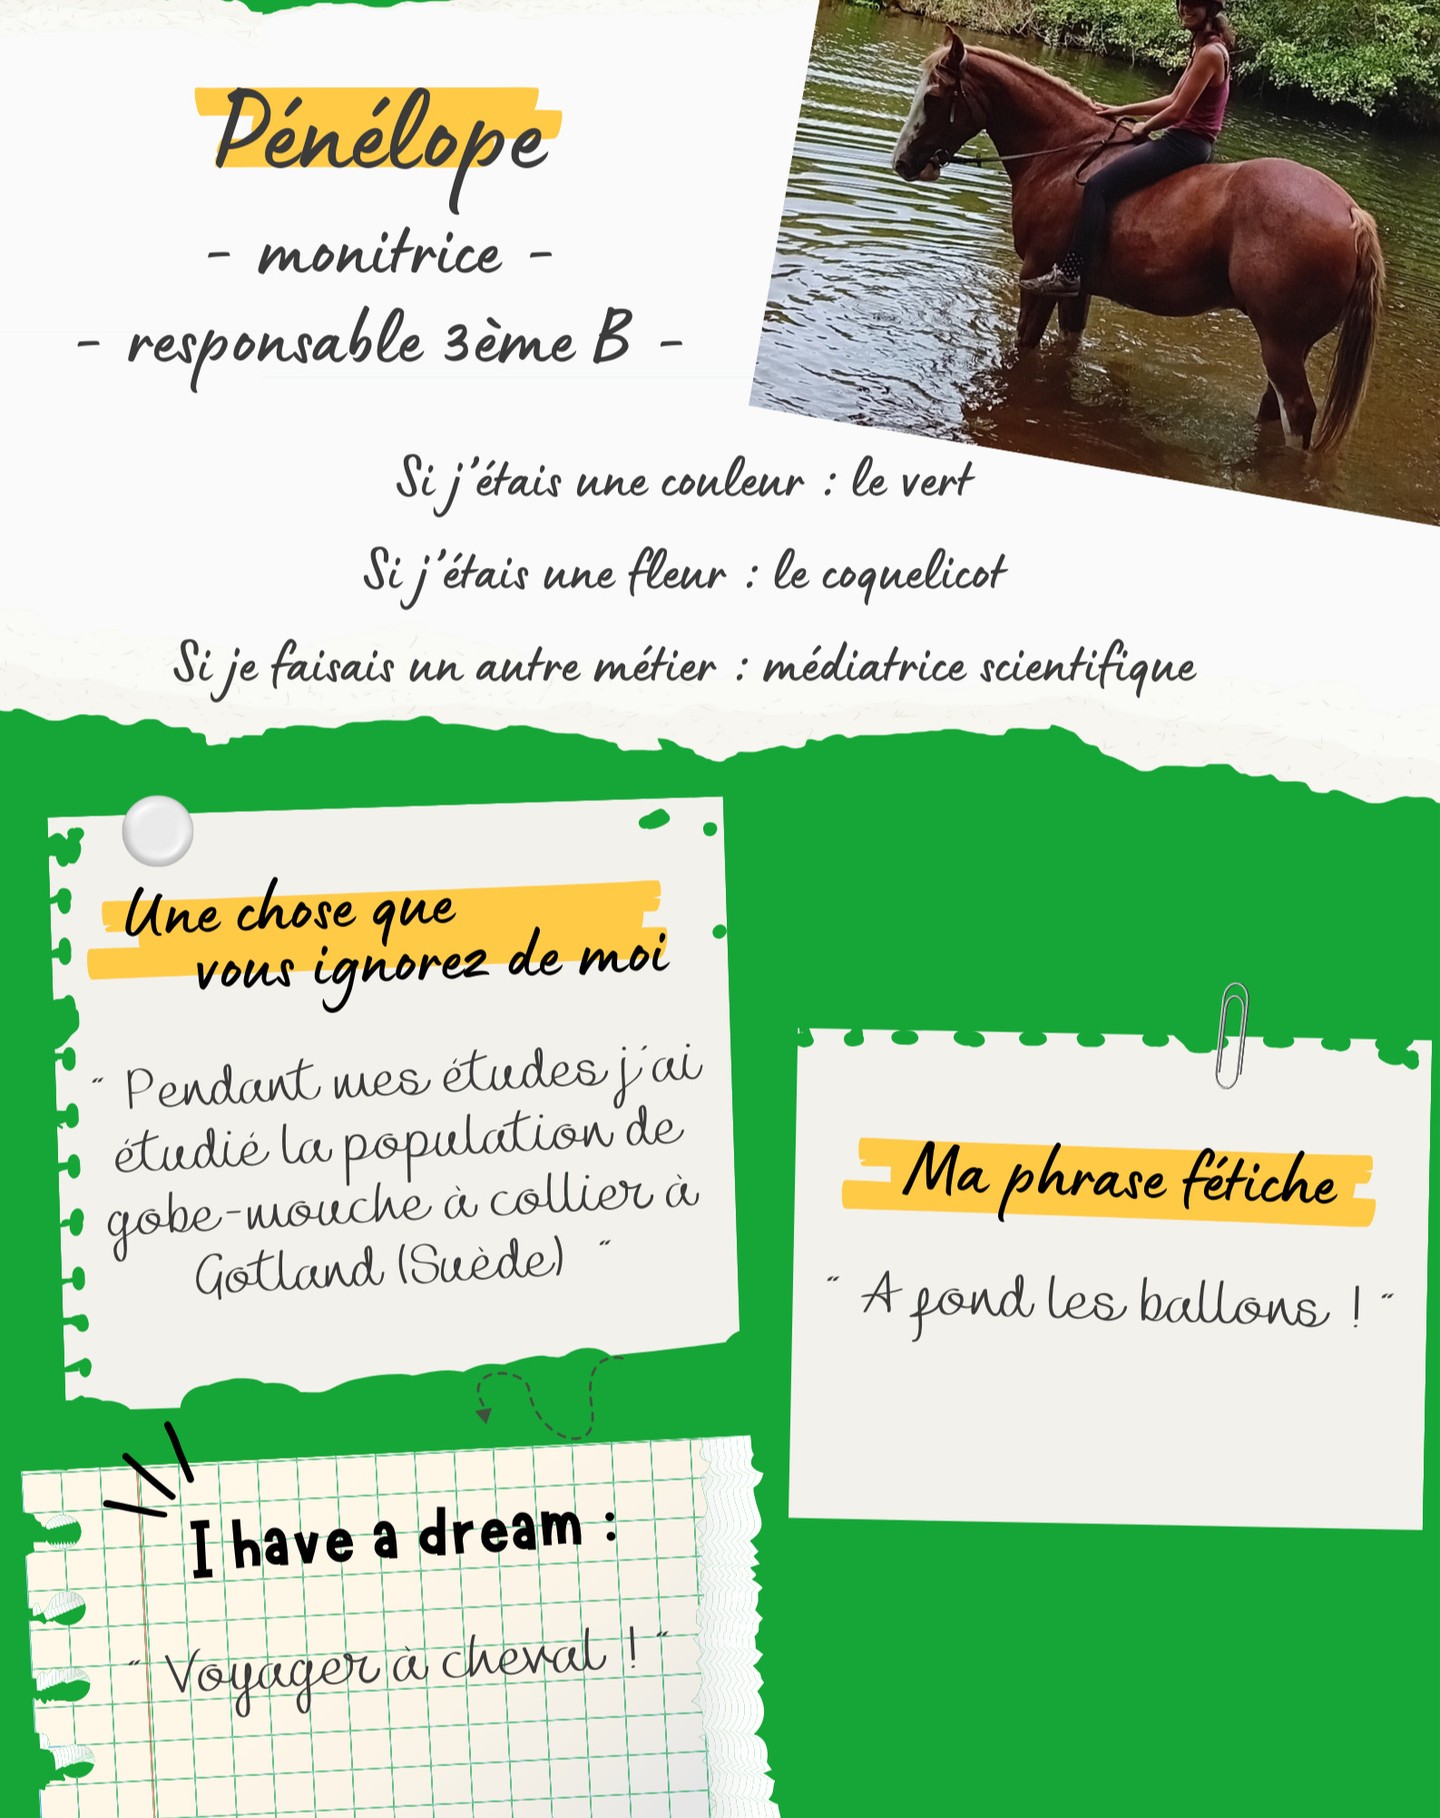 Pénélope
- monitrice -
- responsable 3ème B -
Si j'étais une couleur : le vert
Si j'étais une fleur : le coquelicot
Si je faisais un autre métier : médiatrice scientifique
Une chose que
vous ignorez de moi
" Pendant mes études j'ai
étudié la population de
gobe-mouche à collier à
Gotland (Suède) "
Ma phrase fétiche
" A fond les ballons ! "
I have a dream :
" Voyager à cheval ! "